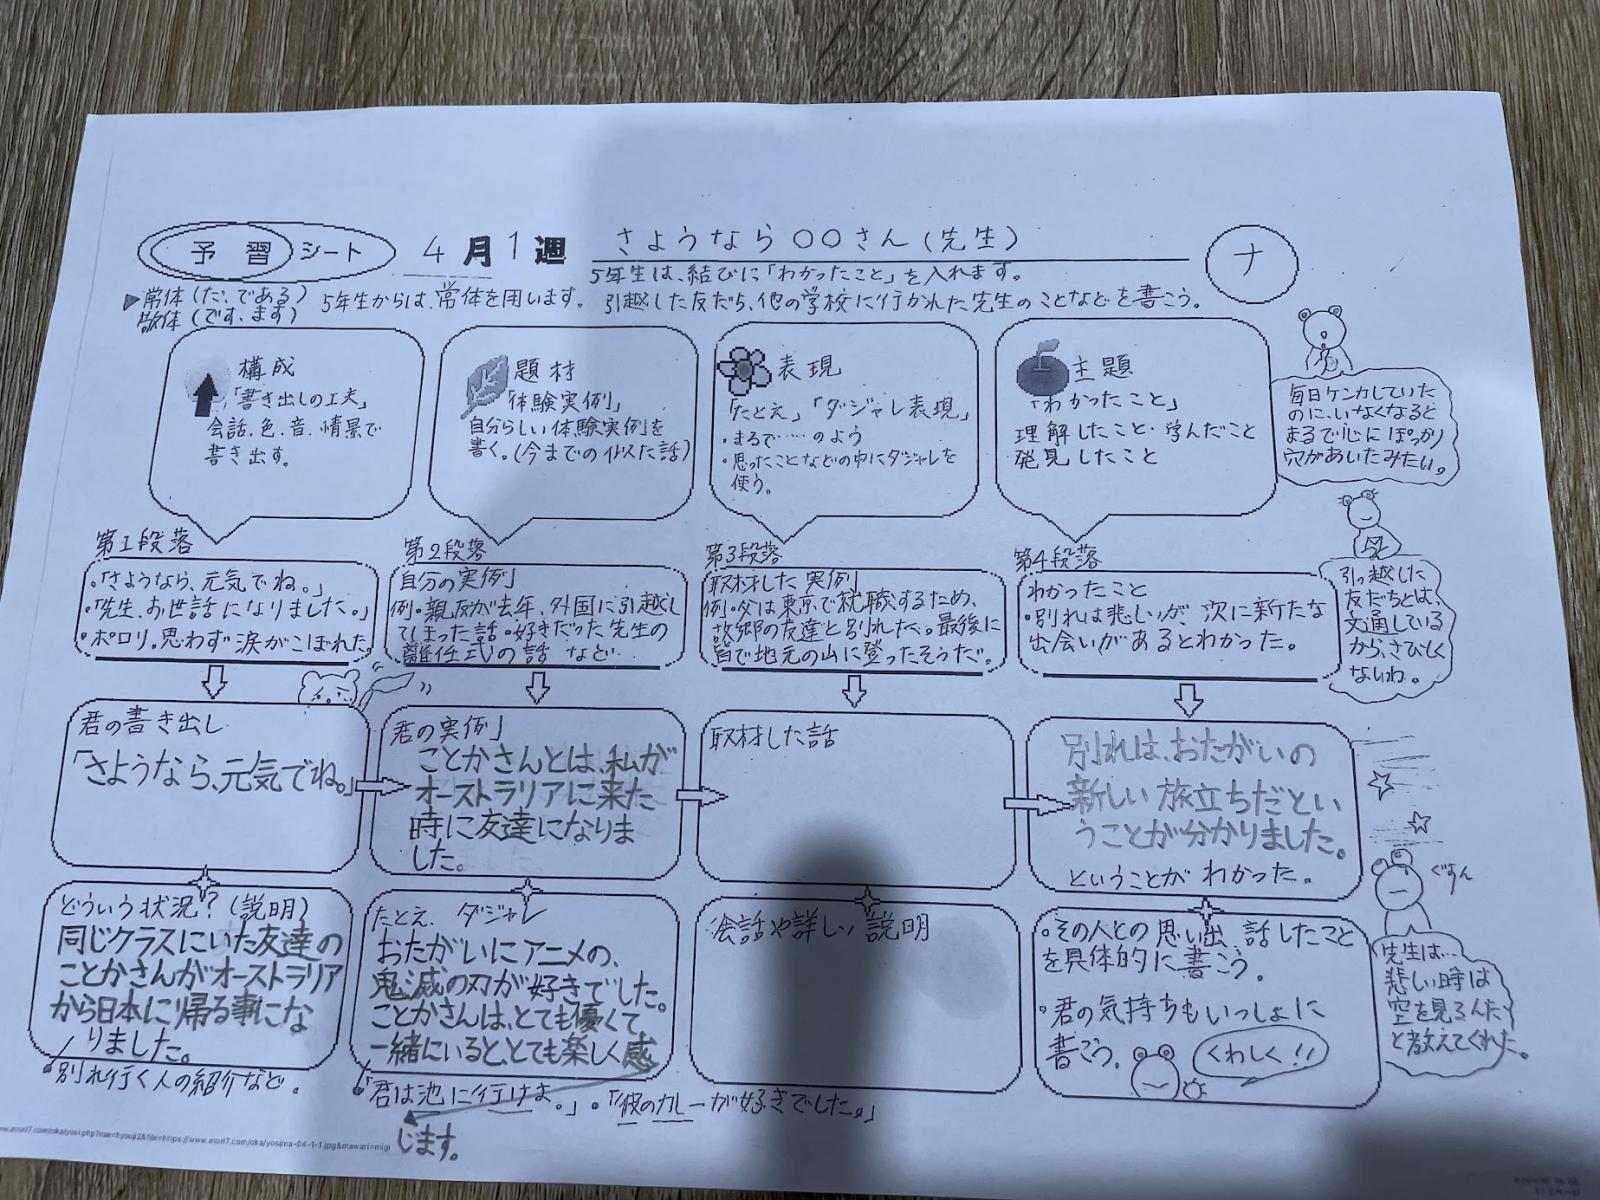 予習シート 4月1週 さようなら○○さん(先生) ナ
5年生は、結びに「わかったこと」を入れます。
▶常体(だ、である) 5年生からは、常体を用います。 引越した友だち、他の学校に行かれた先生のことなどを書こう。
敬体(です、ます)
構成
「書き出しの工夫」
会話、色、音、情景で
書き出す。
題材
「体験実例」
自分らしい体験実例を
書く。(今までの似た話)
表現
「たとえ」「ダジャレ表現」
・まるで……のよう
・思ったことなどの中にダジャレを
使う。
主題
「わかったこと」
理解したこと・学んだこと
発見したこと
毎日ケンカしていた
のに、いなくなると
まるで心にぽっかり
穴があいたみたい。
第1段落
・「さようなら、元気でね。」
・「先生、お世話になりました。」
・ポロリ。思わず涙がこぼれた
第2段落
自分の実例」
例・親友が去年、外国に引越し
てしまった話・好きだった先生の
離任式の話 など…
第3段落
取材した実例」
例・父は東京で就職するため、
故郷の友達と別れた。最後に
皆で地元の山に登ったそうだ。
第4段落
わかったこと
・別れは悲しいが、次に新たな
出会いがあるとわかった。
引っ越した
友だちとは
文通している
から、さびしく
ないわ。
君の書き出し
「さようなら、元気でね。」
君の実例」
ことかさんとは、私が
オーストラリアに来た
時に友達になりま
した。
取材した話
別れは、おたがいの
新しい旅立ちだとい
うことが分かりました。
ということが わかった。
ぐすん
どういう状況?(説明)
同じクラスにいた友達の
ことかさんがオーストラリア
から日本に帰る事にな
りました。
・別れ行く人の紹介など。
たとえ、ダジャレ
おたがいにアニメの、
鬼滅の刃が好きでした。
ことかさんは、とても優くて、
一緒にいると、とても楽しく感
じます。
・「君は池に行けま。」・「彼のカレーが好きでした。」
会話や詳しい説明
・その人との思い出、話したこと
を具体的に書こう。
・君の気持ちもいっしょに
書こう。
くわしく!!
先生は…
悲しい時は
空を見るんだ
と教えてくれた。